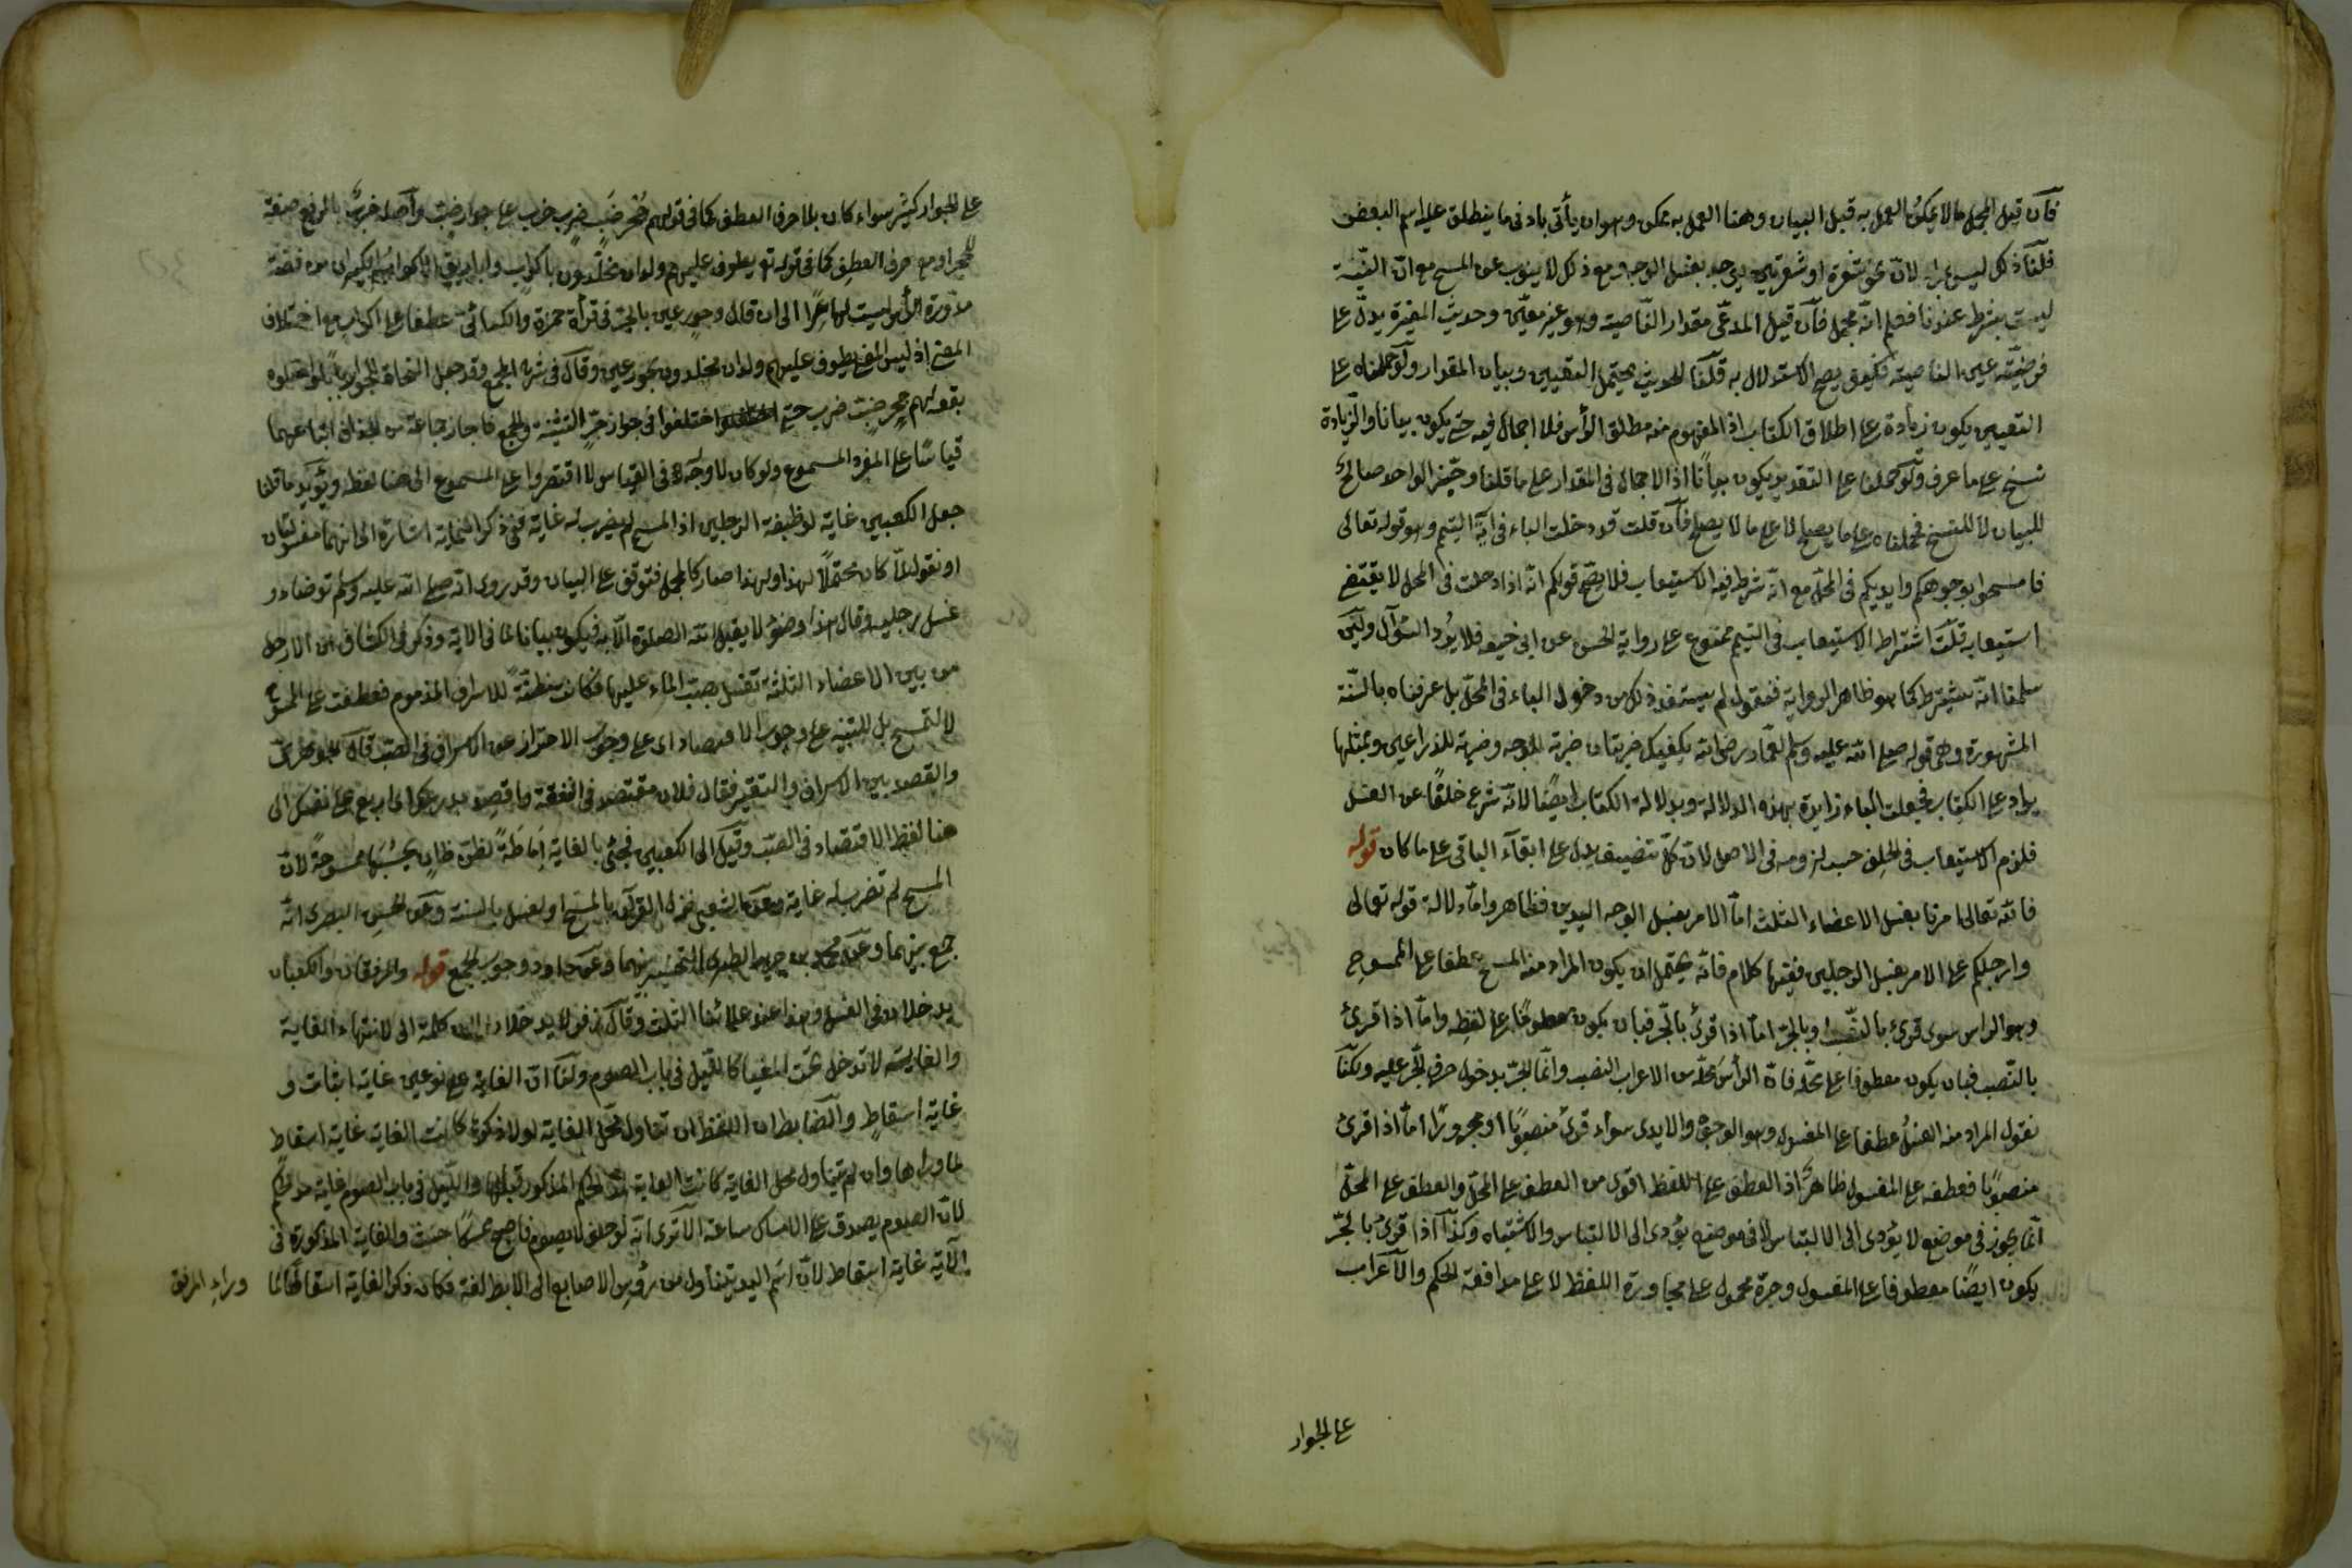 فان قيل المجمل ما لا يمكن العمل به قبل البيان وهنا العمل به ممكن وهو ان يأتي بادنى ما ينطلق عليه اسم البعض
قلنا ذلك ليس بمراد لان نحو شعرة او شعرتين يوجد بغسل الوجه ومع ذلك لا ينوب عن المسح مع ان النية
ليست بشرط عندنا فعلم انه مجمل فان قيل المدعى مقدار الناصية وهو غير معين وحديث المغيرة يدل على
فرضية عين الناصية فكيف يصح الاستدلال به قلنا الحديث يحتمل التعيين وبيان المقدار ولو حملناه على
التعيين يكون زيادة على اطلاق الكتاب اذ المفهوم منه مطلق الرأس فلا اجمال فيه حتى يكون بيانا والزيادة
نسخ على ما عرف ولو حملنا على التقدير يكون بيانا اذ الاجمال في المقدار على ما قلنا وخبر الواحد صالح
للبيان لا للنسخ فحملناه على ما يصلح لا على ما لا يصلح فان قلت قد دخلت الباء في آية التيمم وهو قوله تعالى
فامسحوا بوجوهكم وايديكم في المحل مع انه شرط فيه الاستيعاب فلا يصح قولكم انه اذا دخلت في المحل لا يقتضي
استيعابه قلت اشتراط الاستيعاب في التيمم ممنوع على رواية الحسن عن ابي حنيفة فلا يرد السؤال ولئن
سلمنا انه يشترط كما هو ظاهر الرواية فنقول لم يستفد ذلك من دخول الباء في المحل بل عرفناه بالسنة
المشهورة وهي قوله صلى الله عليه وسلم لعمار رض انه يكفيك ضربتان ضربة للوجه وضربة للذراعين وبمثلها
يزاد على الكتاب فجعلت الباء زايدة بهذه الدلالة وبدلالة الكتاب ايضا لانه شرع خلفا عن الغسل
فلزم الاستيعاب في الخلف حسب لزومه في الاصل لان كل تنصيف يدل على ابقاء الباقي على ما كان قوله
فانه تعالى امرنا بغسل الاعضاء الثلث اما الامر بغسل الوجه اليدين فظاهر واما دلالة قوله تعالى
وارجلكم على الامر بغسل الرجلين ففيها كلام فانه يحتمل ان يكون المراد منه المسح عطفا على الممسوح
وهو الراس سوى قرئ بالنصب او بالجر اما اذا قرئ بالجر فبان يكون معطوفا على لفظه واما اذا قرئ
بالنصب فبان يكون معطوفا على محله فان الرأس محله من الاعراب النصب وانما الجر بدخول حرف الجر عليه ولكنا
نقول المراد منه الغسل عطفا على المغسول وهو الوجه والايدى سواء قرئ منصوبا او مجرورا اما اذا قرئ
منصوبا فعطفه على المغسول ظاهر اذ العطف على اللفظ اقوى من العطف على المحل والعطف على المحل
انما يجوز في موضع لا يؤدى الى الالتباس لا في موضع يؤدى الى الالتباس والاشتباه وكذا اذا قرئ بالجر
يكون ايضا معطوفا على المغسول وجره محمول على مجاورة اللفظ لا على موافقة الحكم والاعراب
على الجوار
على الجوار كثير سواء كان بلا حرف العطف كما في قولهم جحر ضب خرب جر خرب على جوار ضب واصله خرب بالرفع صفة
لجحر او مع حرف العطف كما في قوله تع يطوف عليهم ولدان مخلدون باكواب واباريق من فضة
الى ان قال وحور عين بالجر في قرأة حمزة والكسائي عطفا على اكواب مع اختلاف
المعنى اذ ليس المعنى يطوف عليهم ولدان مخلدون بحور عين وقال في شرح المجمع وقد جعل النحاة للجوار بابا
بقولهم جحر ضب خرب حتى اختلفوا في جواز جر التثنية والجمع فاجاز جماعة من الحذاق اتباعهما
قياسا على المفرد المسموع ولو كان لا وجه في القياس لاقتصروا على المسموع الى هنا لفظه ويؤيد ما قلنا
جعل الكعبين غاية لوظيفة الرجلين اذ المسح لم يضرب له غاية ففي ذكر الغاية اشارة الى انهما مغسولتان
او نقول لما كان محتملا لهذا ولهذا صار كالمجمل فتوقف على البيان وقد روى انه صلى الله عليه وسلم توضاء و
غسل رجليه وقال هذا وضوء لا يقبل الله الصلوة الا به فيكون بيانا لما في الاية وذكر في الكشاف ان الارجل
من بين الاعضاء الثلثة تغسل بصب الماء عليها فكانت مظنة للاسراف المذموم فعطفت على الممسوح
لا لتمسح بل للتنبيه على وجوب الاقتصاد اى على وجوب الاحتراز عن الاسراف في الصب قال الجوهرى
والقصد بين الاسراف والتقتير فقال فلان مقتصد في النفقة واقصد بذرعك اى اربع على نفسك الى
هنا لفظ الاقتصاد في الصب وقيل الى الكعبين فجئ بالغاية اماطة لظن ظان يحسبها ممسوحة لان
المسح لم تضرب له غاية وعن الشعبي نزل القرآن بالمسح والغسل بالسنة وعن الحسن البصرى انه
جمع بينهما وعن محمد بن جرير الطبرى التخيير بينهما وعن داود وجوب الجمع قوله والمرفقان والكعبان
يدخلان في الغسل وهذا عند علمائنا الثلث وقال زفر لا يدخلان لان كلمة الى لانتهاء الغاية
والغاية لا تدخل تحت المغيا كالليل في باب الصوم ولنا ان الغاية على نوعين غاية اثبات و
غاية اسقاط والضابط ان اللفظ ان تناول محل الغاية لولا ذكره كانت الغاية غاية اسقاط
لما وراها وان لم يتناول محل الغاية كانت الغاية لمد الحكم المذكور قبلها والليل في باب الصوم غاية مد الحكم
لان الصوم يصدق على الامساك ساعة الا ترى انه لو حلف لا يصوم فاصبح ممسكا حنث والغاية المذكورة في
الاية غاية اسقاط لان اسم اليد يتناول من رؤس الاصابع الى الابط لغة فكان ذكر الغاية اسقاطا لما
وراء المرفق